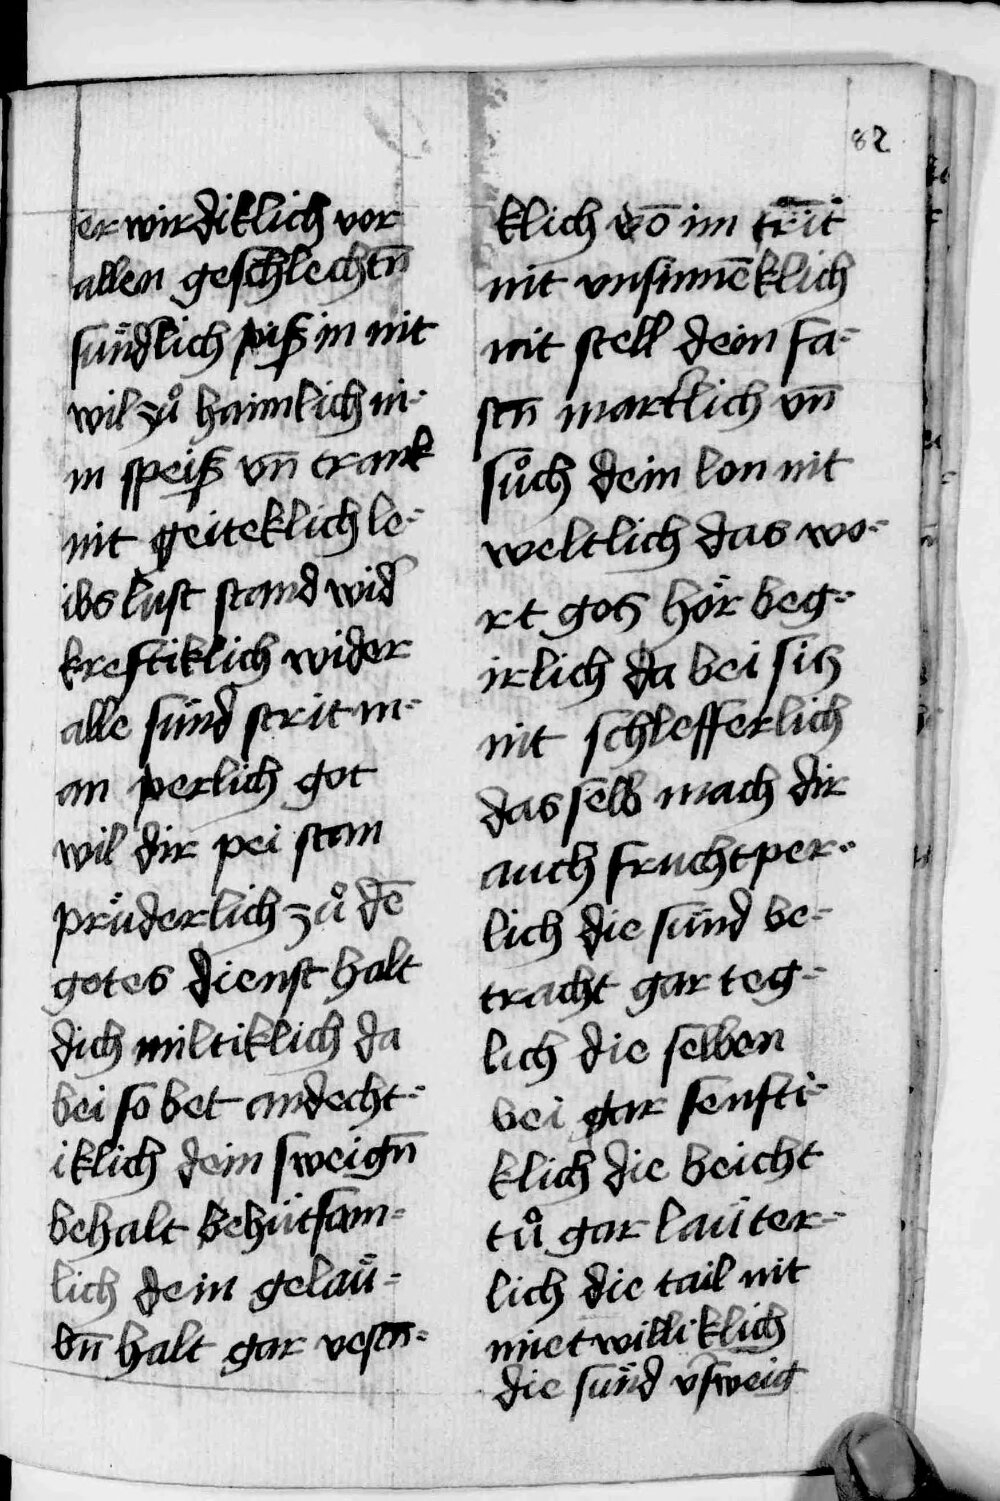 82
er wirdiklich vor
allen geschlechtn̄
sündlich piß in nit
wil zuͦ haimlich ni-
m speiß vn̄ trank
nit geiteklich le-
ibs lust stand wid
kreftiklich wider
alle sünd strit m-
an perlich got
wil dir pei stan
prüderlich zuͦ dē
gotes dienst halt
dich miltiklich da
bei so bet andecht-
iklich dein sweign̄
behalt behütsam-
lich dein gelaü-
bn̄ halt gar vestn-
klich vō im trit
nit vnsinnēklich
nit stell dein fa-
stn̄ martlich vn̄
suͦch dein lon nit
weltlich das wo-
rt gos hör beg-
irlich da bei sitz
nit schlefferlich
das selb mach dir
auch fruchtper-
lich die sünd be-
tracht gar teg-
lich die selben
bei gar senfti-
klich die beicht
tuͦ gar lauter-
lich die tail nit
mietwilliklich
die sünd vsweig